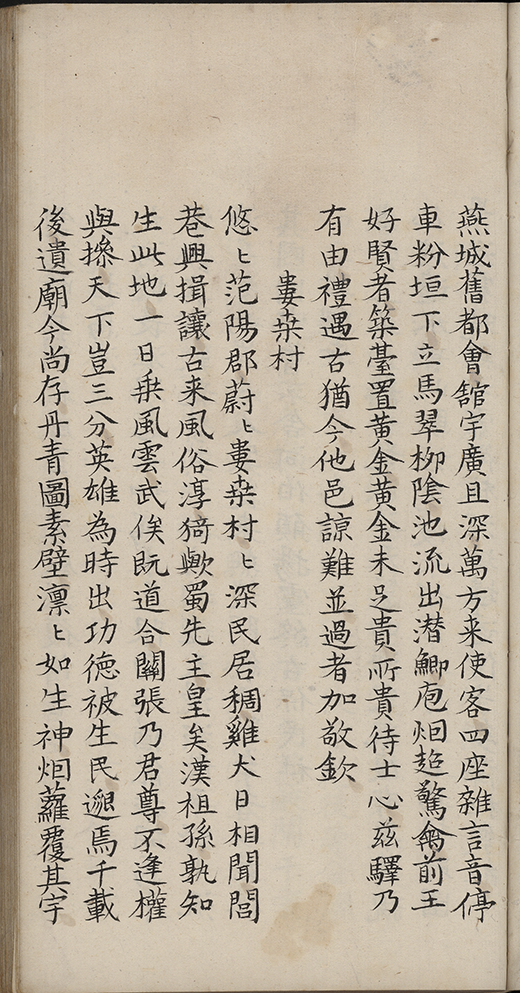 燕城舊都會舘宇廣且深萬方来使客四座雜言音停
車粉垣下立馬翠栁陰池流出潜鯽庖烟起驚禽前王
好賢者築臺置黄金黄金未足貴所貴待士心兹驛乃
有由禮遇古猶今他邑諒難並過者加敬欽
婁桒村
悠〻范陽郡蔚〻婁桒村〻深民居稠雞犬日相聞閭
巷興揖讓古来風俗淳猗歟蜀先主皇矣漢祖孫孰知
生此地一日乗風雲武侯既道合關張乃君尊不逢權
與操天下豈三分英雄為時出功徳被生民邈焉千載
後遺廟今尚存丹青圖素壁凛〻如生神烟蘿覆其宇